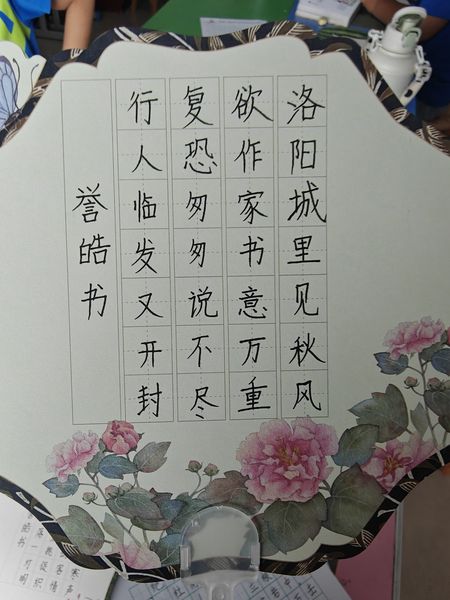 洛阳城里见秋风
欲作家书意万重
复恐匆匆说不尽
行人临发又开封
誉皓书